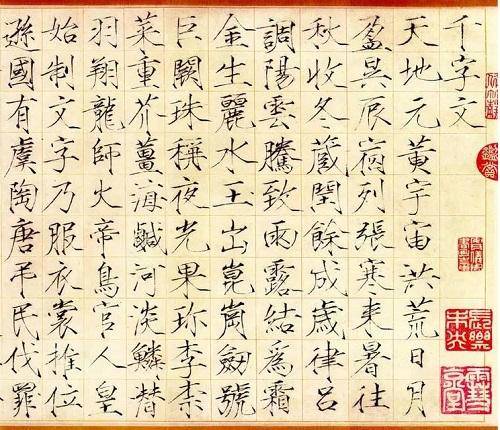 千字文
天地元黃宇宙洪荒日月
盈昃辰宿列張寒来暑往
秋收冬蔵閏餘成歲律呂
調陽雲騰致雨露結爲霜
金生麗水玉出崑崗劔號
巨闕珠稱夜光果珍李柰
菜重芥薑海鹹河淡鱗潜
羽翔龍師火帝鳥官人皇
始制文字乃服衣裳推位
遜國有虞陶唐弔民伐罪
長樂未央